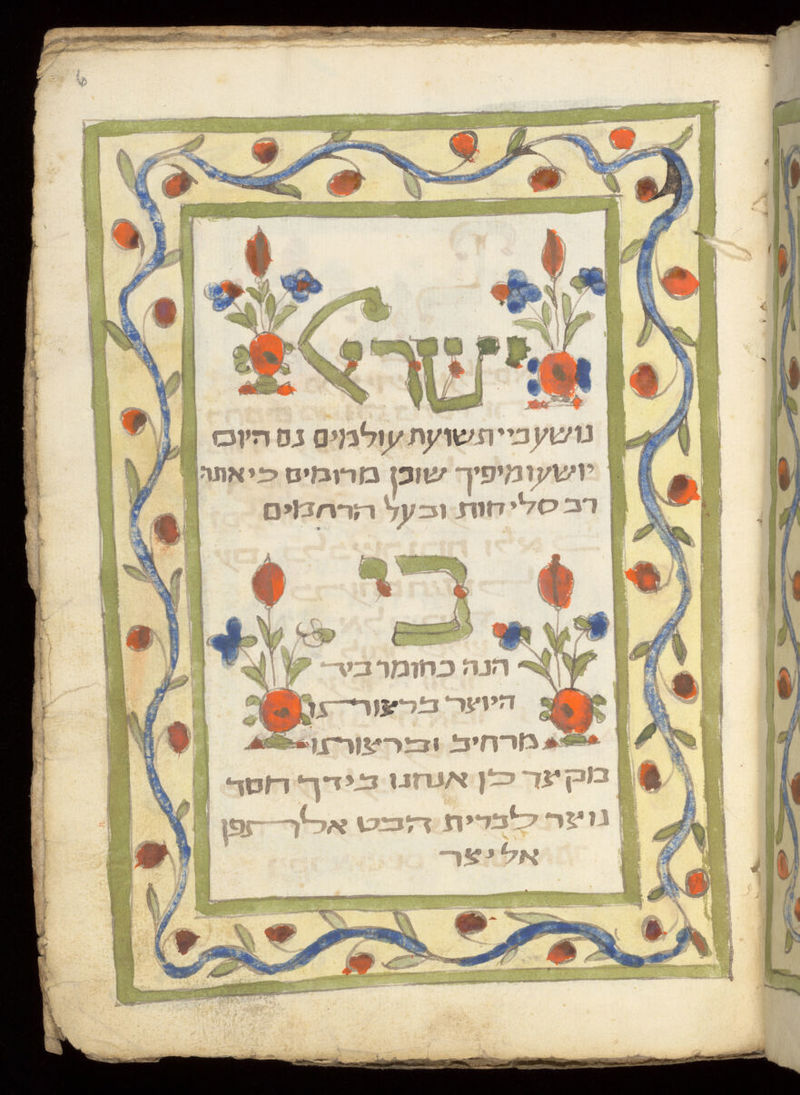 6
ישראל
נושע ביי תשועת עולמים גם היום
יושעו מיפיך שוכן מרומים כי אתה
רב סליחות ובעל הרחמים
כי
הנה כחומר ביד
היוצר ברצותו
מרחיב וברצותו
מקצר כן אנחנו בידך חסד
נוצר לברית הבט אל תפן
אל יצר